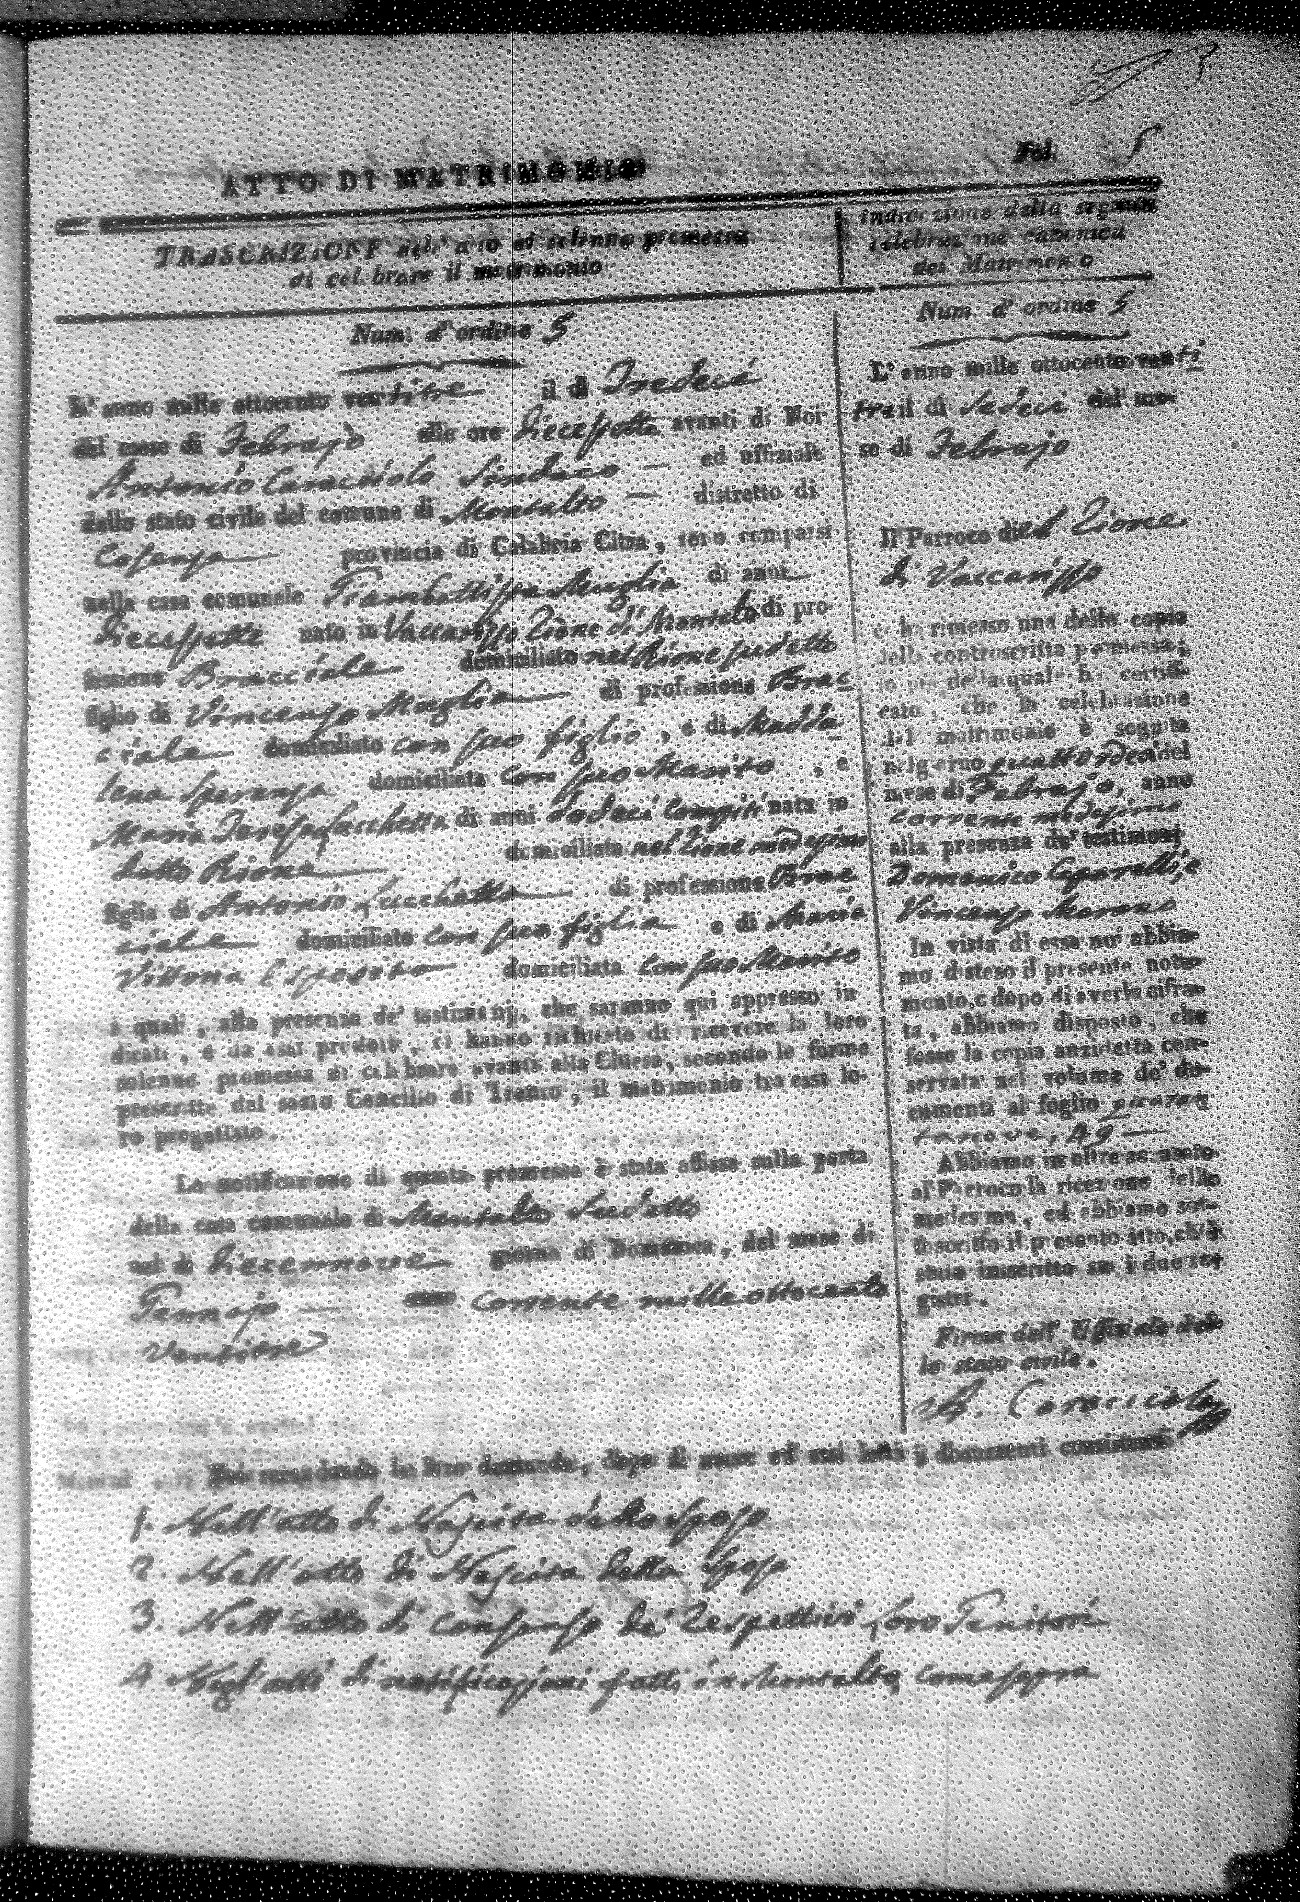 Fol. 5
ATTO DI MATRIMONIO
TRASCRIZIONE dell'atto di solenne promessa
di celebrare il matrimonio
Num. d'ordine 5
L'anno mille ottocento ventitre il dì Tredeci
del mese di Febrajo alle ore diecesette avanti di Noi
Antonio Caracciolo Sindaco — ed uffiziale
dello stato civile del comune di Montalto — distretto di
Cosenza — provincia di Calabria Citra, sono comparsi
nella casa comunale Muglia di anni
diecesette nato in Vaccarizzo Rione di Montalto di pro-
fessione Bracciale domiciliato nel Rione sudetto
figlio di Vincenzo Muglia — di professione Brac
ciale domiciliato con suo figlio, e di Madda
lena Speranza domiciliata con suo Marito, e
Maria Teresa Lucchetta di anni dodeci compiti nata in
detto Rione domiciliata nel Rione medesimo
figlia di Antonio Lucchetta di professione Brac
ciale domiciliato con sua figlia e di Maria
Vittoria Esposito domiciliata con suo Marito
i quali, alla presenza de' testimonj, che saranno qui appresso in-
dicati, e da essi prodotti, ci hanno richiesto di ricevere la loro
solenne promessa di celebrare avanti alla Chiesa, secondo le forme
prescritte dal sacro Concilio di Trento, il matrimonio tra essi lo-
ro progettato.
La notificazione di questa promessa è stata affissa sulla porta
della casa comunale di Montalto sudetto
nel dì diecennove giorno di Domenica, del mese di
Gennajo — corrente mille ottocento
ventitre
Indicazione della seguita
celebrazione canonica
del Matrimonio
Num. d'ordine 5
L'anno mille ottocento venti
tre il dì sedeci del me-
se di Febrajo
Il Parroco di del Rione
di Vaccarizzo
ci ha rimesso una delle copie
della controscritta promessa;
in piè della quale ha certifi-
cato, che la celebrazione
del matrimonio è seguita
nel giorno quattordeci del
mese di Febrajo, anno
corrente medesimo
alla presenza de' testimonj
Domenico Caparelli, e
Vincenzo Morano
In vista di essa noi abbia-
mo disteso il presente nota-
mento, e dopo di averla cifra-
ta, abbiamo disposto, che
fosse la copia anzidetta con-
servata nel volume de' do-
cumenti al foglio quaran
tanove, 49 —
Abbiamo inoltre accusato
al Parroco la ricezione della
medesima, ed abbiamo sot-
toscritto il presente atto, ch'è
stato inscritto su i due re-
gistri.
Firma dell'Uffiziale del-
lo stato civile.
A. Caracciolo
Noi secondando la loro domanda, dopo di aver ad essi letti i documenti consistenti
1. Nell'atto di Nascita dello sposo
2. Nell'atto di Nascita della sposa
3. Nell'atto di consenso de' respettivi loro Genitori
4. Negl'atti di notificazioni fatti in Montalto, come sopra